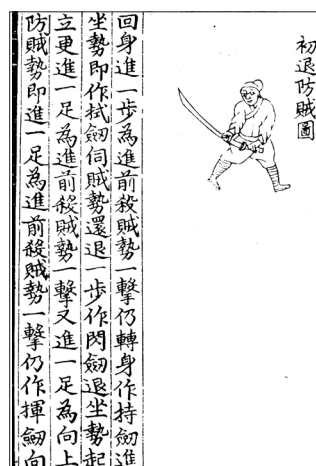 初退防賊圖
回身進一步為進前殺賊勢一擊仍轉身作持劒進
坐勢即作拭劒伺賊勢還退一步作閃劒退坐勢起
立更進一足為進前殺賊勢一擊又進一足為向上
防賊勢即進一足為進前殺賊勢一擊仍作揮劒向